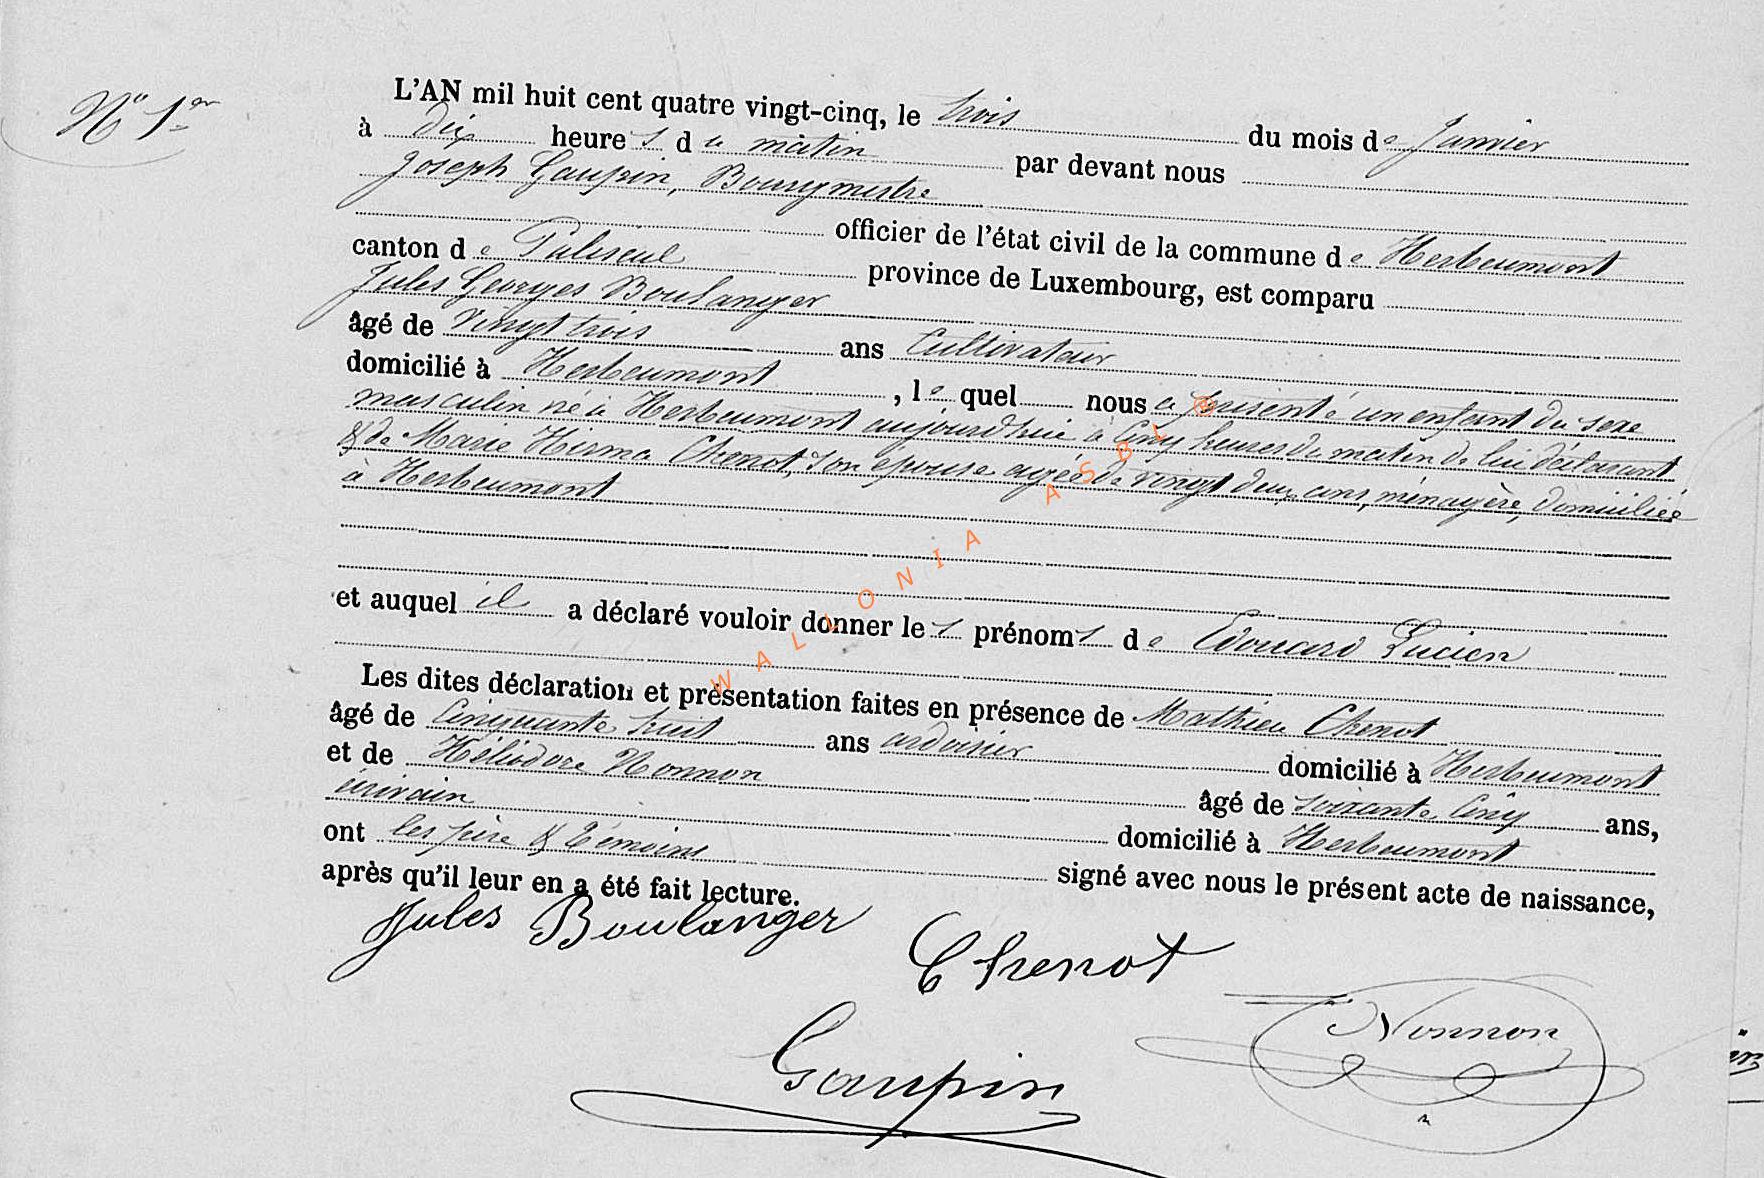 N° 1er
L'AN mil huit cent quatre vingt-cinq, le trois du mois de Janvier
à dix heures du matin par devant nous
Joseph Gaupin, Bourgmestre
officier de l'état civil de la commune de Herbeumont
canton de Paliseul province de Luxembourg, est comparu
Jules Georges Boulanger
âgé de vingt trois ans Cultivateur
domicilié à Herbeumont, lequel nous a présenté un enfant du sexe
masculin né à Herbeumont aujourd'hui à cinq heures du matin de lui déclarant
& de Marie Hirma Chenot, son épouse agée de vingt deux ans, ménagère, domiciliée
à Herbeumont
et auquel il a déclaré vouloir donner les prénoms de Edouard Lucien
Les dites déclaration et présentation faites en présence de Mathieu Chenot
âgé de Cinquante huit ans ardoisier domicilié à Herbeumont
et de Héliodore Nonnon âgé de soixante cinq ans,
écrivain domicilié à Herbeumont
ont les père & témoins signé avec nous le présent acte de naissance,
après qu'il leur en a été fait lecture.
Jules Boulanger
Chenot
Nonnon
Gaupin
WALLONIA ASBL @